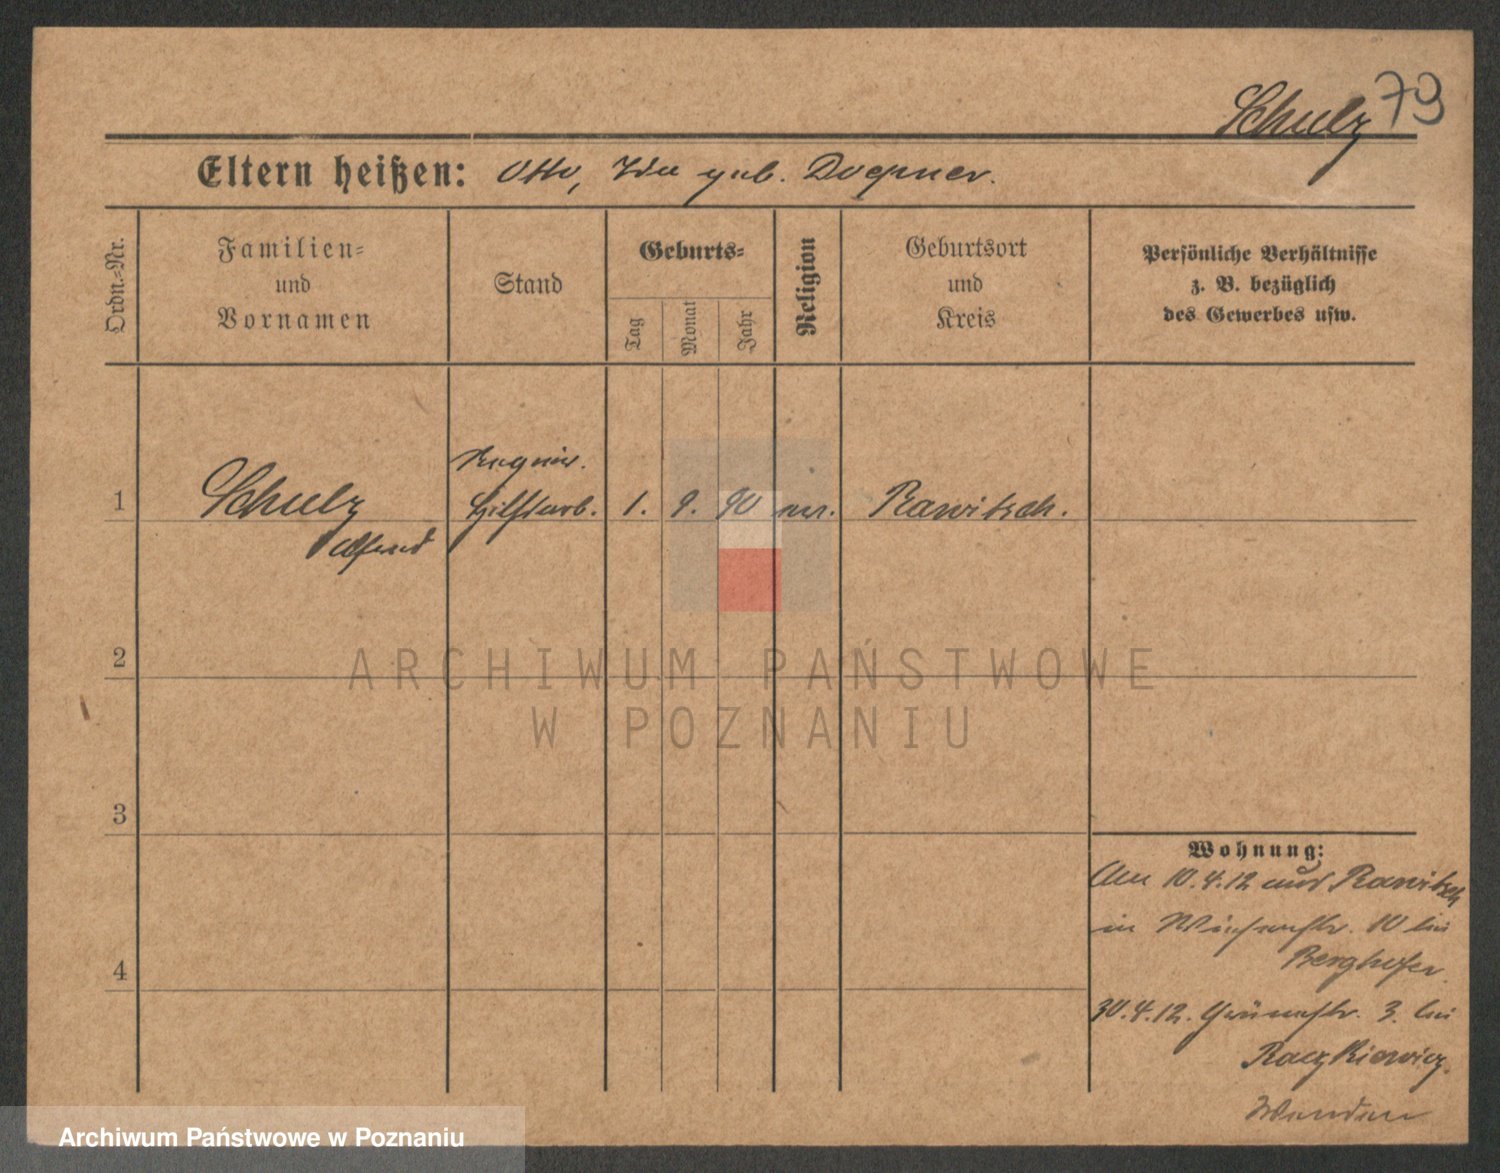 Schulz 79
Eltern heißen: Otto, Ida geb. Doepner.
Ordn.-Nr.
Familien-
und
Vornamen
Stand
Geburts-
Tag
Monat
Jahr
Religion
Geburtsort
und
Kreis
Persönliche Verhältnisse
z. B. bezüglich
des Gewerbes usw.
1
Schulz
Alfred
Hilfsarb.
1. 9. 90
Rawitsch.
2
ARCHIWUM PAŃSTWOWE
W POZNANIU
3
4
Wohnung:
Am 10.4.12 aus Rawitsch
in 10 bei
Berghofer.
30.4.12. Grünestr. 3. bei
Raczkiewicz.
Wenden
Archiwum Państwowe w Poznaniu